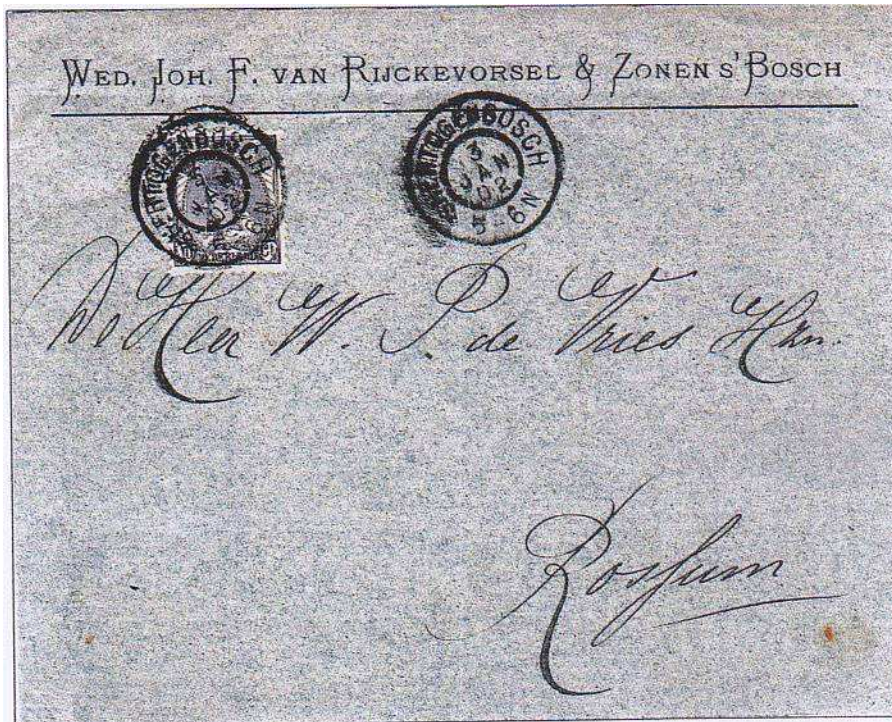 WED. JOH. F. VAN RIJCKEVORSEL & ZONEN S'BOSCH
'S-HERTOGENBOSCH
3
JAN
02
5-6N
'S-HERTOGENBOSCH
3
JAN
02
5-6N
De Heer W. P. de Vries Hzn.
Rossum